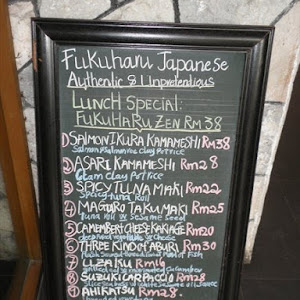 Fukuharu Japanese
Authentic & Unpretentious
LUNCH SPECIAL:
FUKUHARU ZEN RM 38
① SALMON IKURA KAMAMESHI RM38
Clay Pot Rice
② ASARI KAMAMESHI RM28
Clam Clay Pot Rice
③ SPICY TUNA MAKI RM22
Spicy Tuna Roll
④ MAGURO TAKU MAKI RM25
Tuna Roll w Sesame Seed
⑤ CAMEMBERT CHEESE KAKIAGE RM20
⑥ THREE KIND ABURI RM30
Fish
⑦ UZAKU RM16
Cucumber
⑧ SUZUKI CARPACCIO RM28
AJI KATSU RM28